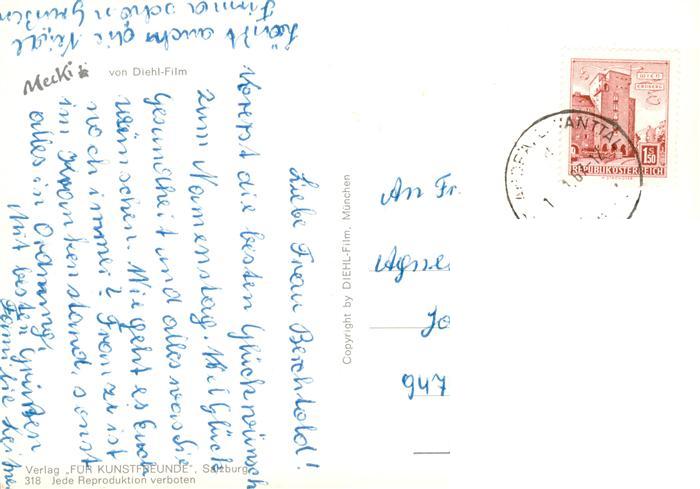 Läßt auch die
Firma schön Grüßen
Mecki
von Diehl-Film
Liebe Frau Berchtold!
Vorerst die besten Glückwünsch
zum Namenstag. Viel Glück
Gesundheit und alles was Sie
wünschen. Wie geht es Euch
noch immer? Franz ist
im Krankenstand, sonst
alles in Ordnung.
Mit besten Grüßen
Familie
Copyright by DIEHL-Film, München
An Fr
Agne
Jo
947
WIEN
ERDBERG
1.50
REPUBLIK ÖSTERREICH
Verlag „FÜR KUNSTFREUNDE", Salzburg
318 Jede Reproduktion verboten